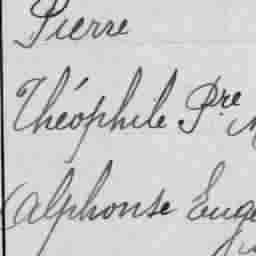 Pierre
Théophile Pre
Alphonse Euge